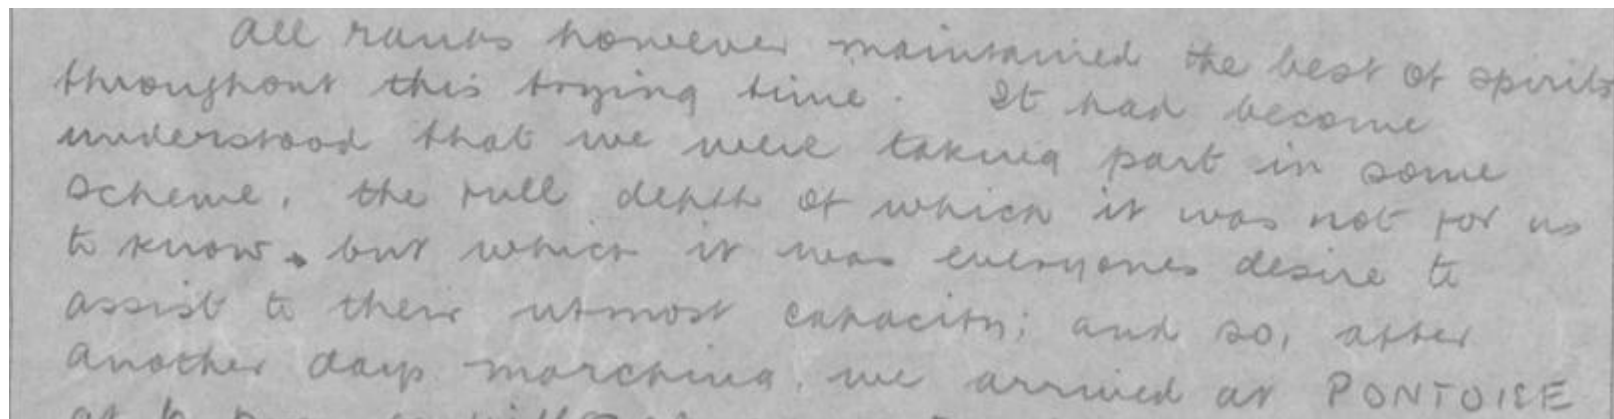 All ranks however maintained the best of spirits
throughout this trying time. It had become
understood that we were taking part in some
scheme, the full depth of which it was not for us
to know, but which it was everyones desire to
assist to their utmost capacity; and so, after
another days marching, we arrived at PONTOISE
at